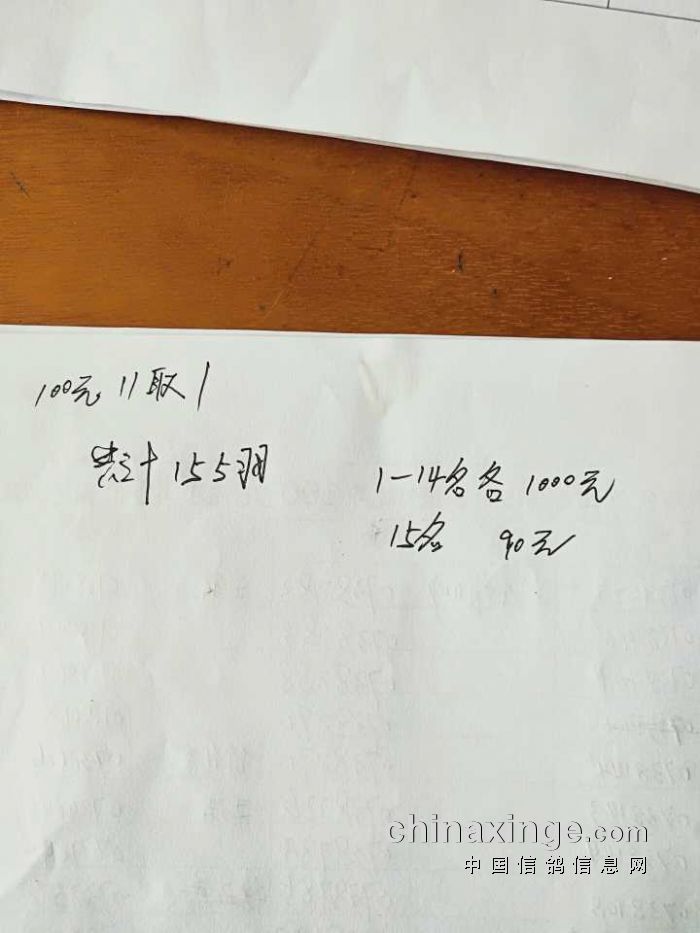 100元 11取1
共计155羽
1-14名各1000元
15名 90元
chinaxinge.com
中国信鸽信息网